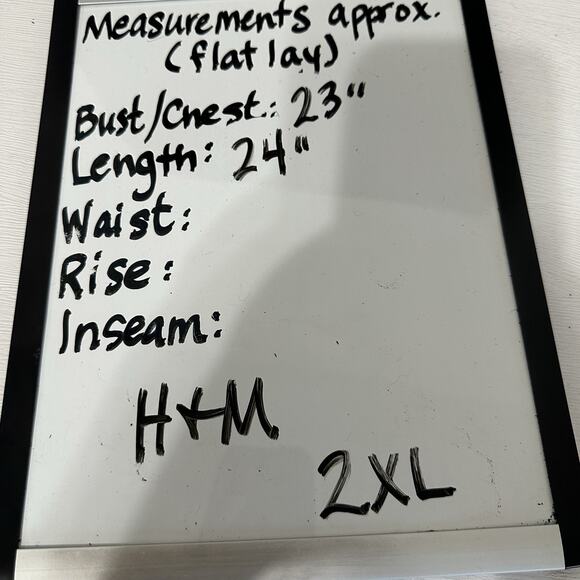 Measurements approx.
(flat lay)
Bust/Chest: 23"
Length: 24"
Waist:
Rise:
Inseam:
H+M
2XL